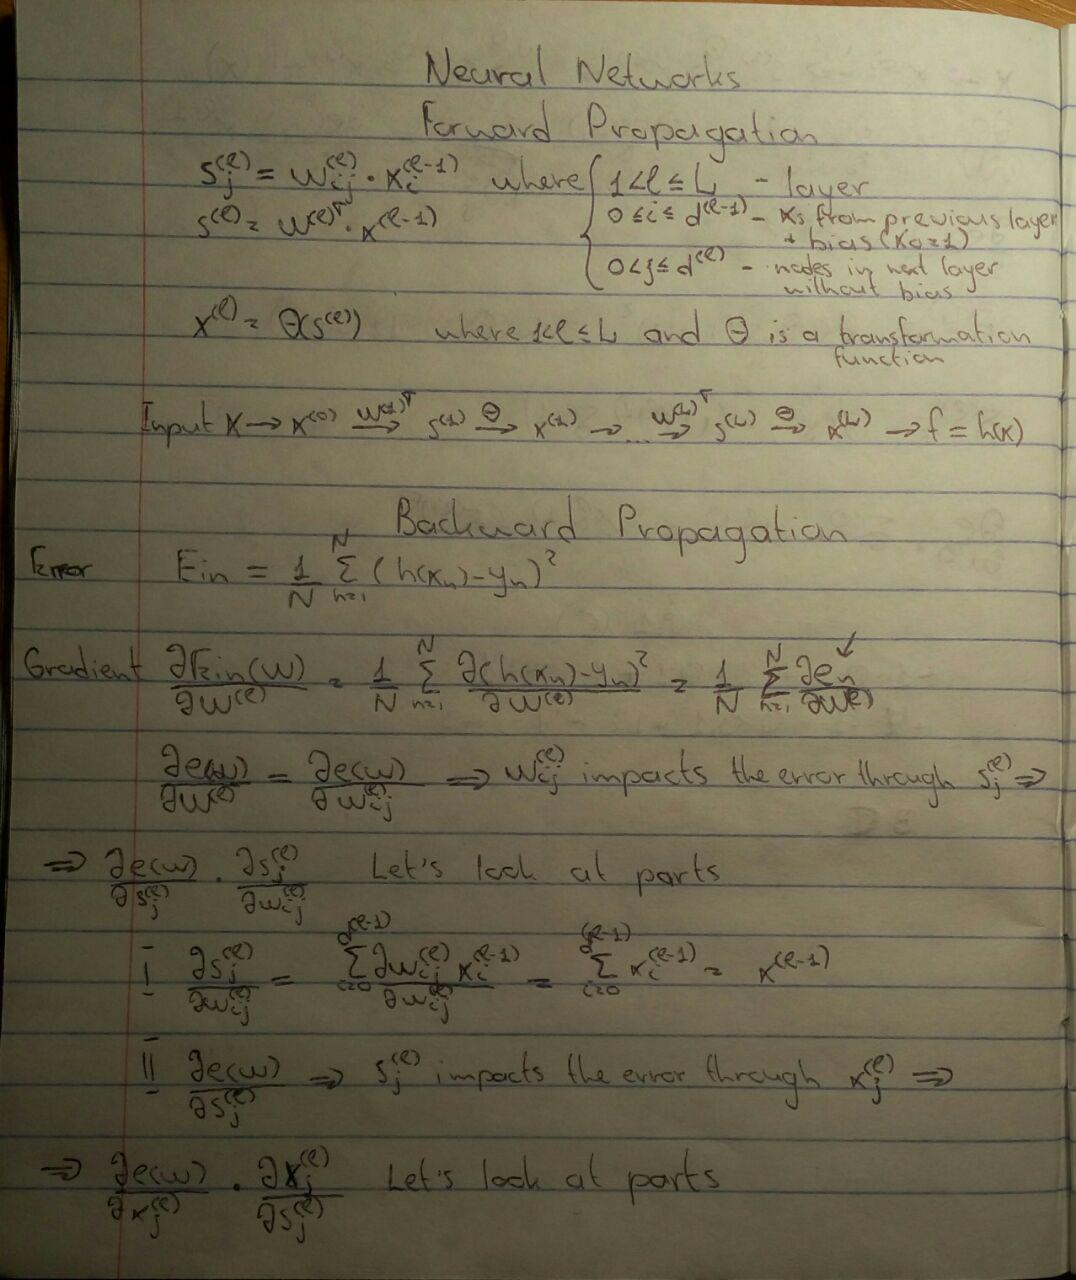 Neural Networks
Forward Propagation
s_j^(l) = w_ij^(l) · x_i^(l-1) where { 1<l≤L - layer
s^(l) = w^(l)T · x^(l-1) 0≤i≤d^(l-1) - xs from previous layer
+ bias (x0=1)
0<j≤d^(l) - nodes in next layer
without bias
x^(l) = Θ(s^(l)) where 1<l≤L and Θ is a transformation
function
Input x → x^(0) →^{w^(1)T} s^(1) →^Θ x^(1) → ... →^{w^(L)T} s^(L) →^Θ x^(L) → f = h(x)
Backward Propagation
Error Ein = 1/N Σ_{n=1}^N (h(xn)-yn)²
Gradient ∂Ein(w)/∂w^(l) = 1/N Σ_{n=1}^N ∂(h(xn)-yn)²/∂w^(l) = 1/N Σ_{n=1}^N ∂en/∂w^(l) ↙
∂e(w)/∂w^(l) = ∂e(w)/∂w_ij^(l) ⇒ w_ij^(l) impacts the error through s_j^(l) ⇒
⇒ ∂e(w)/∂s_j^(l) · ∂s_j^(l)/∂w_ij^(l) Let's look at parts
I ∂s_j^(l)/∂w_ij^(l) = Σ_{i=0}^{d^(l-1)} ∂w_ij^(l) x_i^(l-1)/∂w_ij^(l) = Σ_{i=0}^{d^(l-1)} x_i^(l-1) = x^(l-1)
II ∂e(w)/∂s_j^(l) ⇒ s_j^(l) impacts the error through x_j^(l) ⇒
⇒ ∂e(w)/∂x_j^(l) · ∂x_j^(l)/∂s_j^(l) Let's look at parts